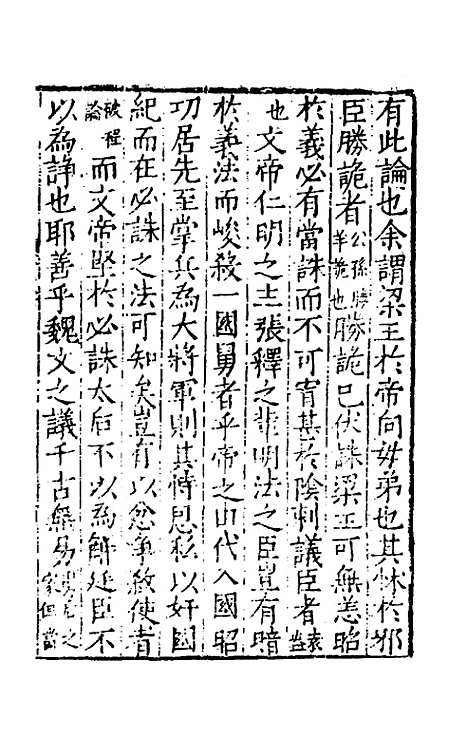 有此論也余謂梁王於帝同母弟也其怵於邪
臣勝詭者公孫勝羊詭也勝詭已伏誅梁王可無恙昭
於義必有當誅而不可宥某於陰刺議臣者袁盎
也文帝仁明之主張釋之輩明法之臣豈有暗
於義法而峻殺一國舅者乎帝之由代入國昭
功居先至掌兵為大將軍則其恃恩私以奸國
紀而在必誅之法可知矣豈有以忿爭殺使者
被程論而文帝堅於必誅太后不以為解廷臣不
以為諍也耶善乎魏文之議千古無易之家但當